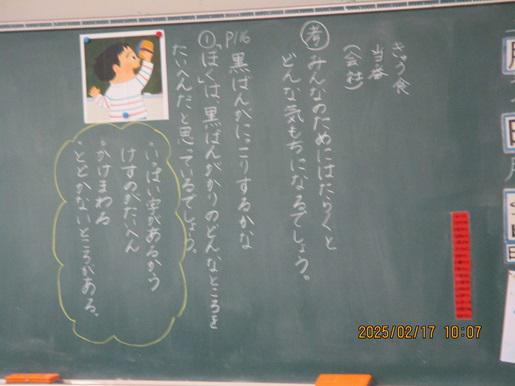 きゅう食
当番
(会社)
考 みんなのためにはたらくと
どんな気もちになるでしょう。
P116
黒ばんがにっこりするかな
①「ぼくは、黒ばんがかりのどんなところを
たいへんだと思っているでしょう。
いっぱい字があるから
けすのがたいへん
かけまわる
とどかないところがある。
2025/02/17 10:07